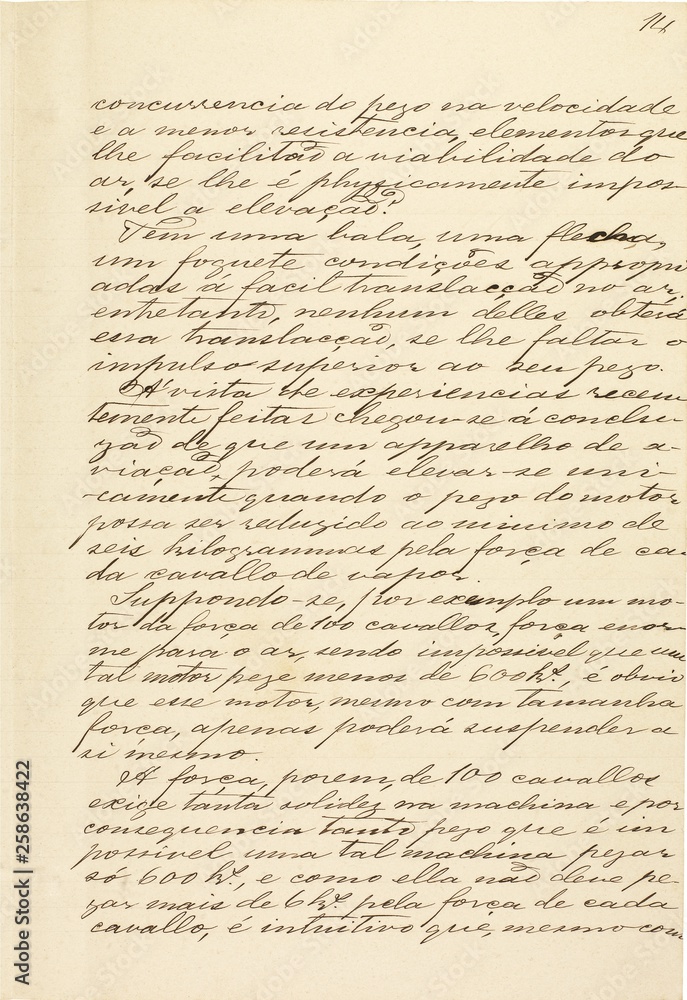 14
concurrencia do pezo na velocidade
e a menor resistencia, elementos que
lhe facilitão a viabilidade do
ar, se lhe é physicamente impos-
sivel a elevação?
Têm uma bala, uma flecha,
um foguete condições appropri
adas á facil translacção no ar,
entretanto, nenhum delles obterá
essa translacção, se lhe faltar o
impulso superior ao seu pezo.
A' vista de experiencias recen
temente feitas chegou-se á conclu-
zão de que um apparelho de a-
viação, poderá elevar-se uni-
-camente quando o pezo do motor
possa ser reduzido ao minimo de
seis kilogrammas pela força de ca-
da cavallo de vapor.
Suppondo-se, por exemplo um mo-
tor da força de 100 cavallos, força enor-
me para o ar, sendo impossivel que um
tal motor peze menos de 600 k.ˢ, é obvio
que esse motor, mesmo com tamanha
força, apenas poderá suspender a
si mesmo.
A força, porem, de 100 cavallos
exige tanta solidez na machina e por
consequencia tanto pezo que é im
possivel uma tal machina pezar
só 600 k.ˢ, e como ella não deve pe-
zar mais de 6 k.ˢ pela força de cada
cavallo, é intuitivo que, mesmo com
Adobe Stock | #258638422